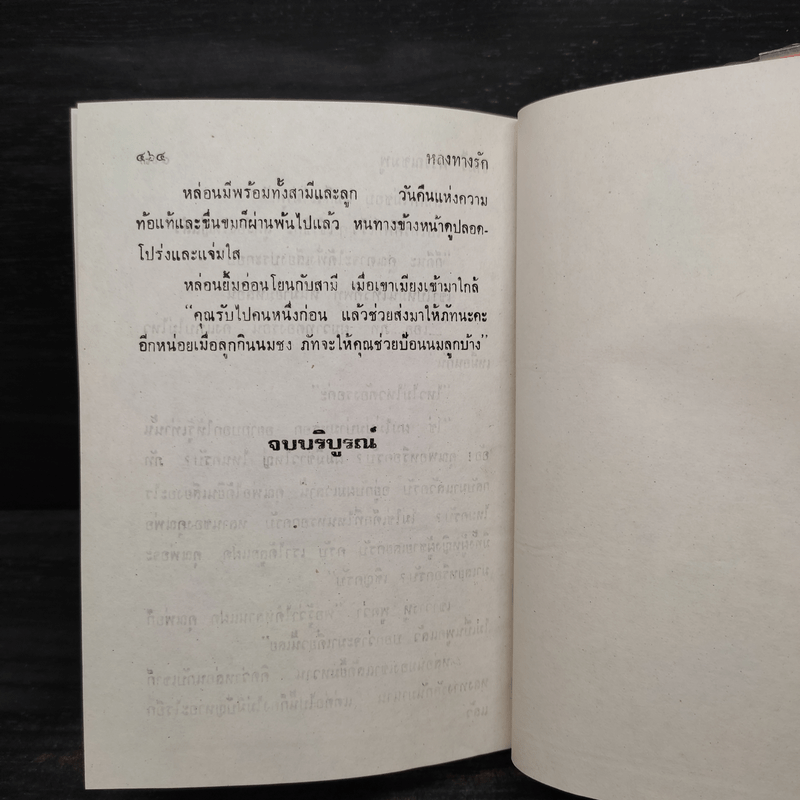 ๔๖๔ หลงทางรัก
หล่อนมีพร้อมทั้งสามีและลูก วันคืนแห่งความ
ท้อแท้และขื่นขมก็ผ่านพ้นไปแล้ว หนทางข้างหน้าดูปลอด-
โปร่งและแจ่มใส
หล่อนยิ้มอ่อนโยนกับสามี เมื่อเขาเมียงเข้ามาใกล้
“คุณรับไปคนหนึ่งก่อน แล้วช่วยส่งมาให้ภัทนะคะ
อีกหน่อยเมื่อลูกกินนมชง ภัทจะให้คุณช่วยป้อนนมลูกบ้าง”
จบบริบูรณ์